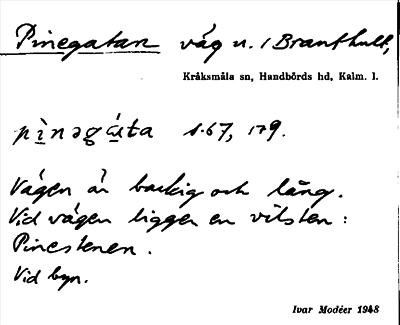 Pinegatan väg n. i Branthult,
Kråksmåla sn, Handbörds hd, Kalm. l.
pìnəgáta s. 67, 179.
Vägen är backig och lång.
Vid vägen ligger en vilsten :
Pinestenen.
Vid byn.
Ivar Modéer 1948